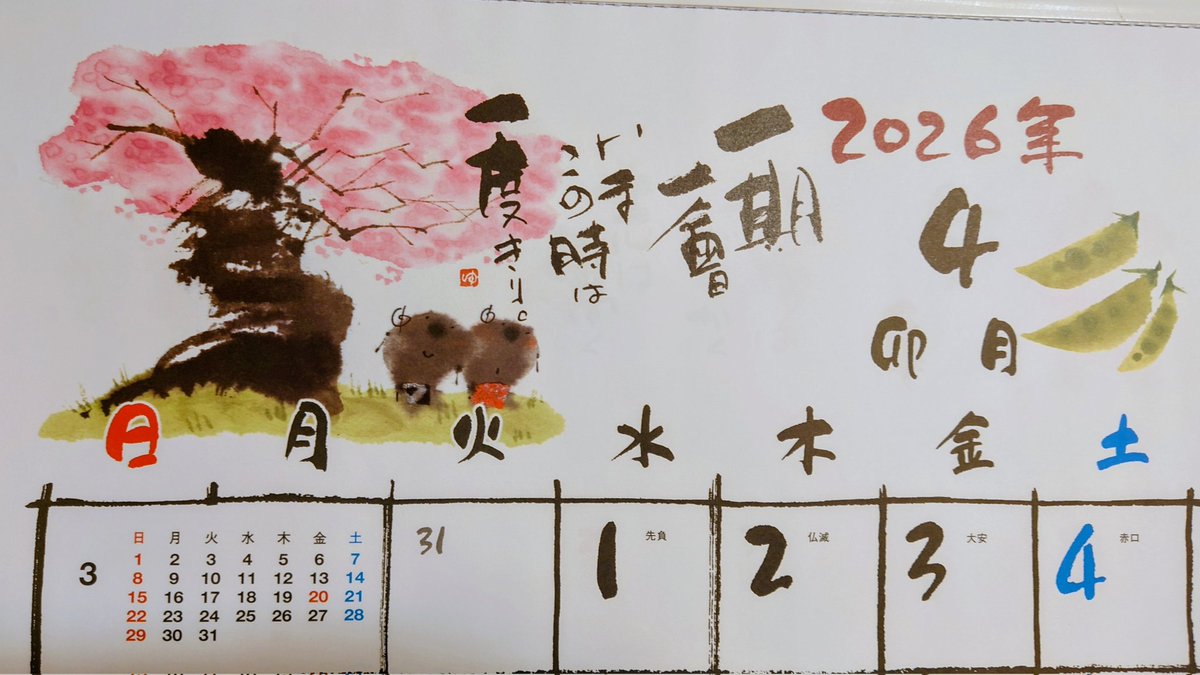 2026年
4
卯月
一期
一會
いま
この時は
一度きり
日 月 火 水 木 金 土
3
日 月 火 水 木 金 土
1 2 3 4 5 6 7
8 9 10 11 12 13 14
15 16 17 18 19 20 21
22 23 24 25 26 27 28
29 30 31
31
1 先負
2 仏滅
3 大安
4 赤口